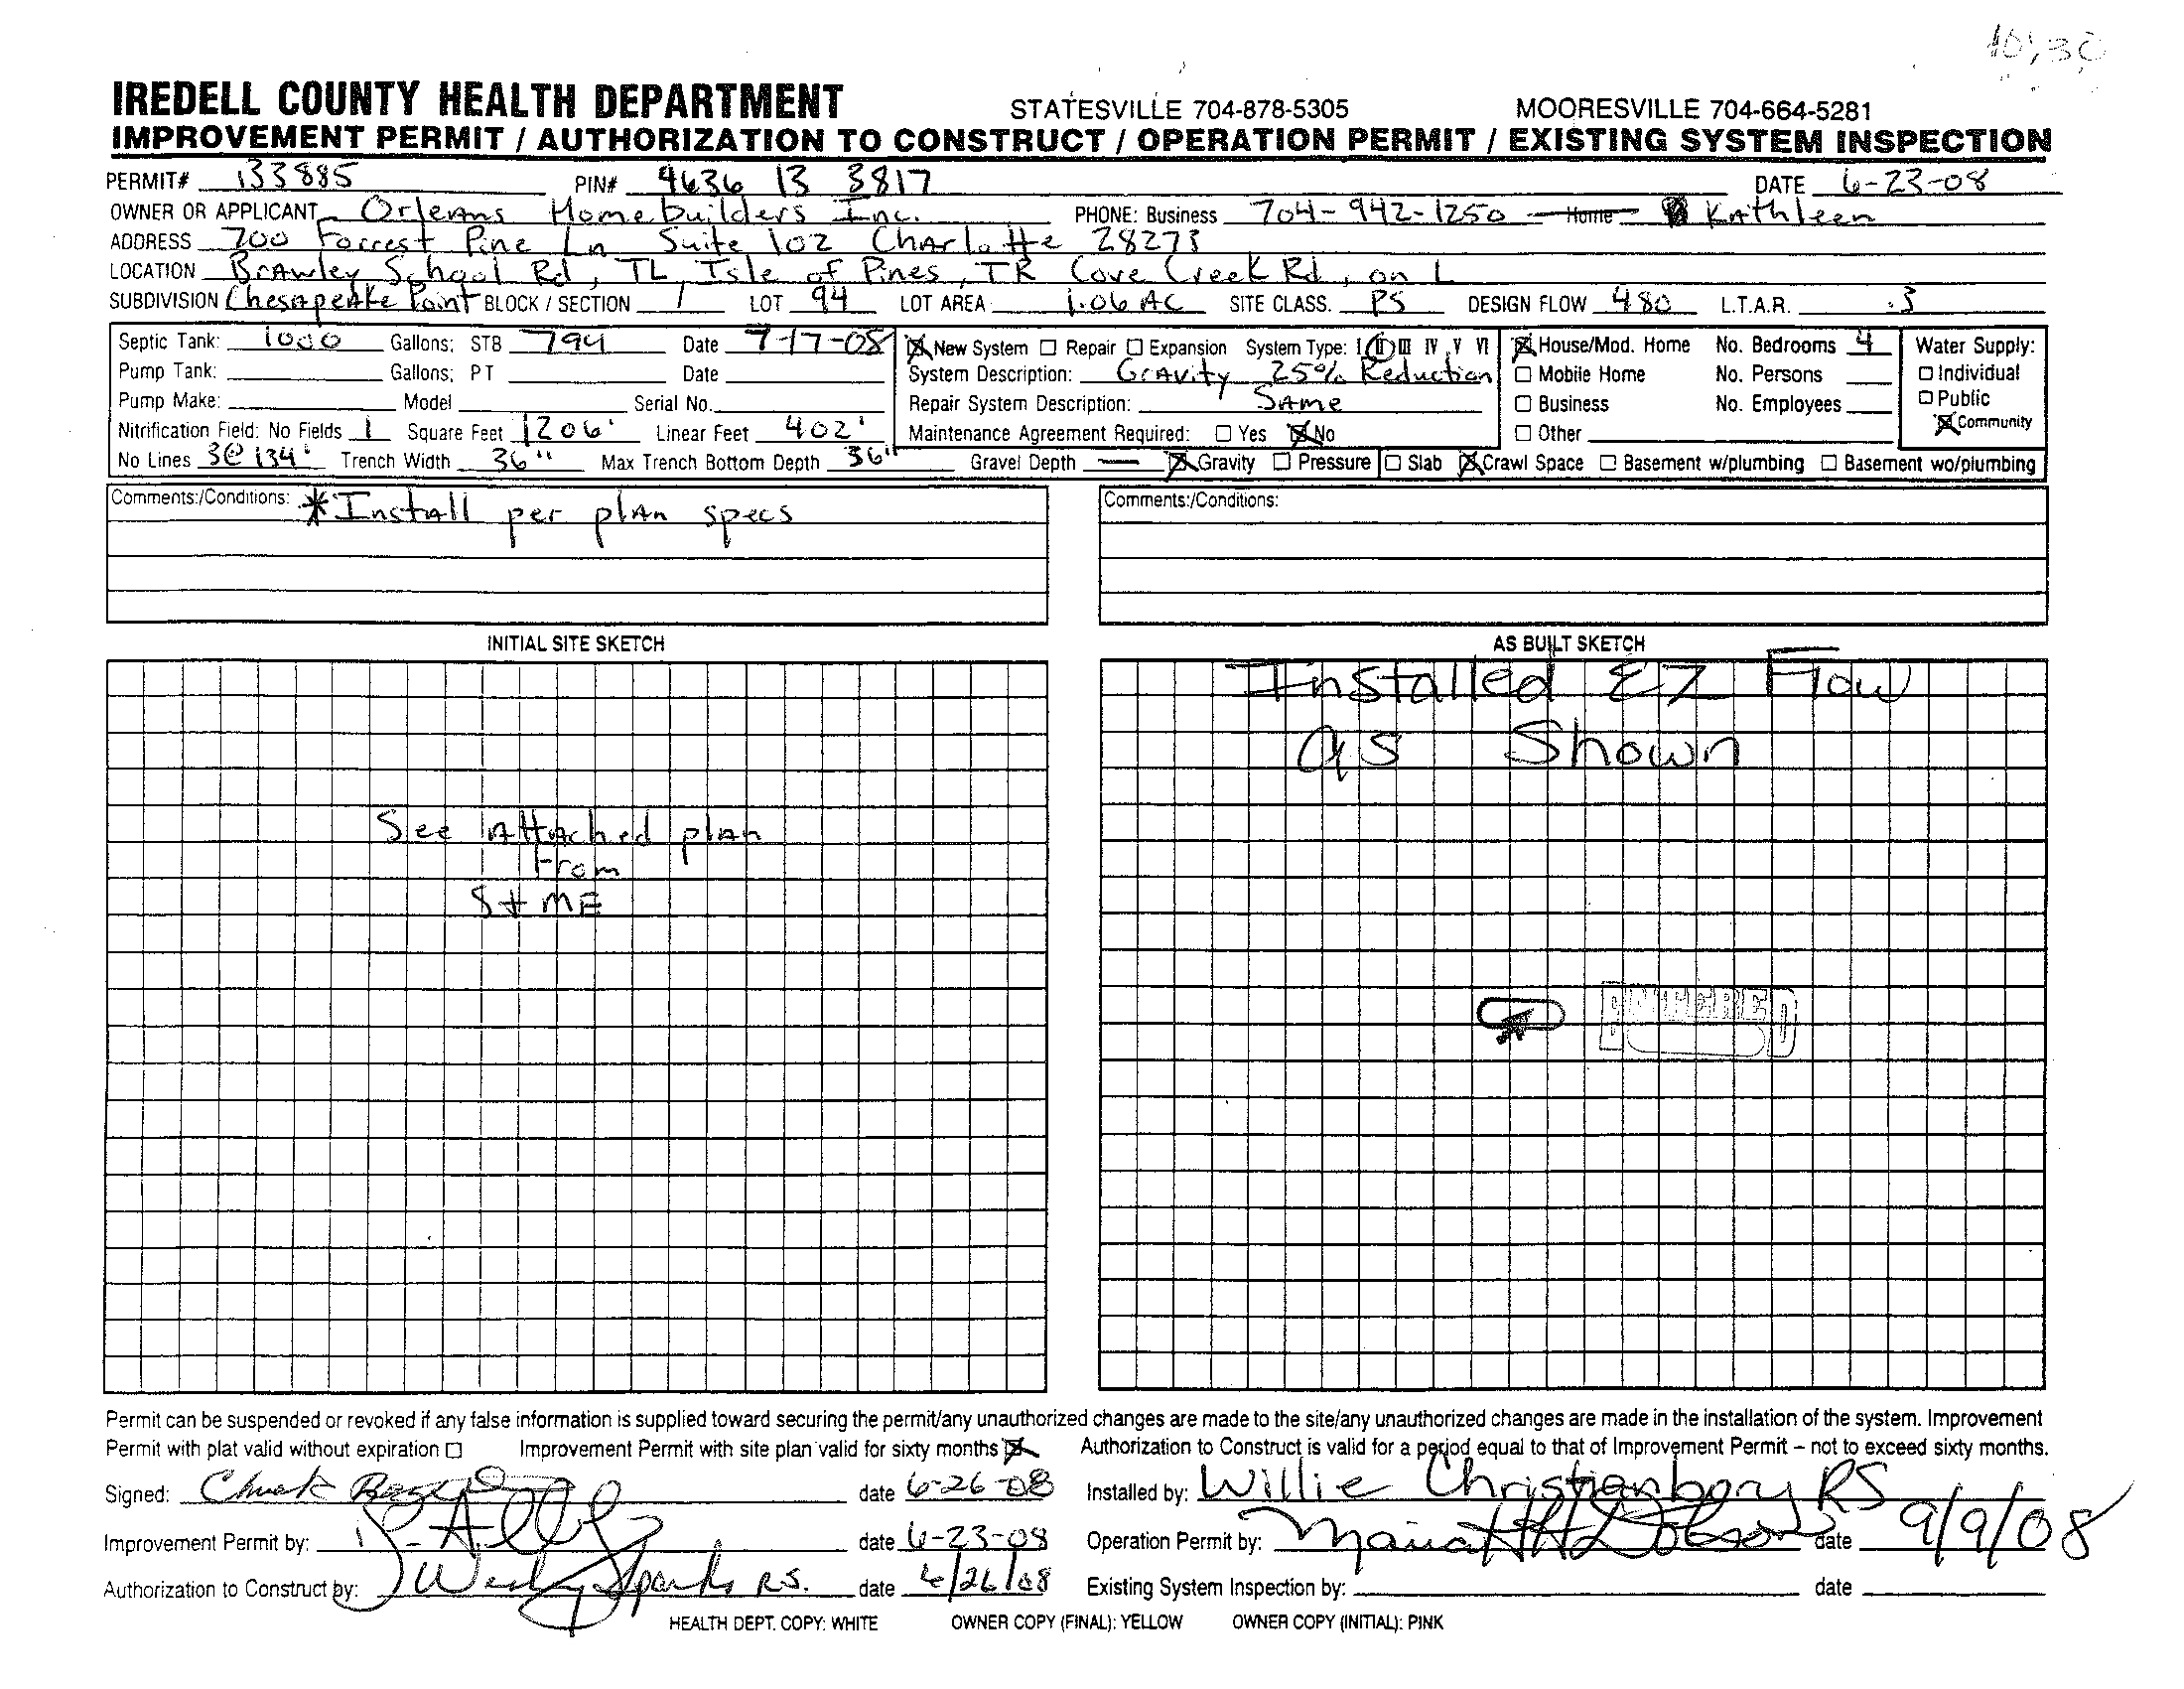 10:30
IREDELL COUNTY HEALTH DEPARTMENT STATESVILLE 704-878-5305 MOORESVILLE 704-664-5281
IMPROVEMENT PERMIT / AUTHORIZATION TO CONSTRUCT / OPERATION PERMIT / EXISTING SYSTEM INSPECTION
PERMIT# 133885 PIN# 4636 13 3817 DATE 6-23-08
OWNER OR APPLICANT Orleans Homebuilders Inc. PHONE: Business 704-942-1250 Home Kathleen
ADDRESS 700 Forrest Pine Ln Suite 102 Charlotte 28273
LOCATION Brawley School Rd, TL Isle of Pines, TR Cove Creek Rd, on L
SUBDIVISION Chesapeake Point BLOCK / SECTION 1 LOT 94 LOT AREA 1.06 AC SITE CLASS. PS DESIGN FLOW 480 L.T.A.R. .3
Septic Tank: 1000 Gallons; STB 794 Date 7-17-08 New System Repair Expansion System Type: I II III IV V VI House/Mod. Home No. Bedrooms 4 Water Supply:
Pump Tank: Gallons; PT Date System Description: Gravity 25% Reduction Mobile Home No. Persons Individual
Pump Make: Model Serial No. Repair System Description: Same Business No. Employees Public
Nitrification Field: No Fields 1 Square Feet 1206' Linear Feet 402' Maintenance Agreement Required: Yes No Other Community
No Lines 3@134' Trench Width 36" Max Trench Bottom Depth 36" Gravel Depth — Gravity Pressure Slab Crawl Space Basement w/plumbing Basement wo/plumbing
Comments:/Conditions: *Install per plan specs Comments:/Conditions:
INITIAL SITE SKETCH AS BUILT SKETCH
Installed EZ Flow
as Shown
See Attached plan
From
S+ME
ENTERED
Permit can be suspended or revoked if any false information is supplied toward securing the permit/any unauthorized changes are made to the site/any unauthorized changes are made in the installation of the system. Improvement
Permit with plat valid without expiration Improvement Permit with site plan valid for sixty months Authorization to Construct is valid for a period equal to that of Improvement Permit – not to exceed sixty months.
Signed: Chuck date 6-26-08 Installed by: Willie Christianbery RS
Improvement Permit by: date 6-23-08 Operation Permit by: Dobson date 9/9/08
Authorization to Construct by: Wesley Sparks R.S. date 6/26/08 Existing System Inspection by: date
HEALTH DEPT. COPY: WHITE OWNER COPY (FINAL): YELLOW OWNER COPY (INITIAL): PINK